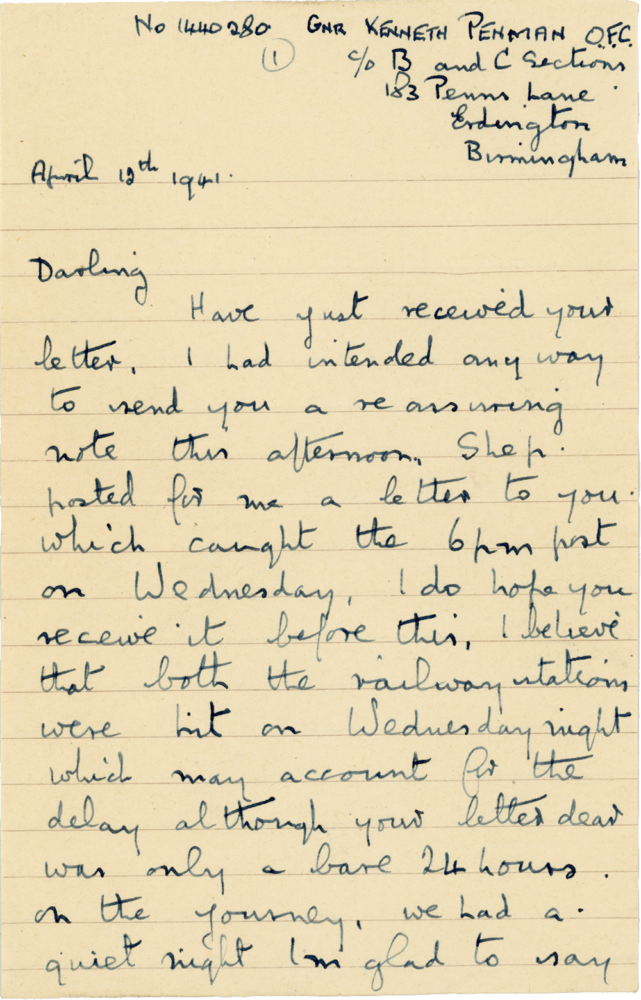 No 1440280 GNR KENNETH PENMAN O.F.C.
(1) c/o B and C Sections
183 Penns Lane
Erdington
Birmingham
April 12th 1941.
Darling
Have just received your
letter, I had intended any way
to send you a re assuring
note this afternoon, Shep.
posted for me a letter to you.
which caught the 6pm post
on Wednesday, I do hope you
receive it before this, I believe
that both the railway stations
were hit on Wednesday night
which may account for the
delay although your letter dear
was only a bare 24 hours.
on the journey, we had a.
quiet night Im glad to say